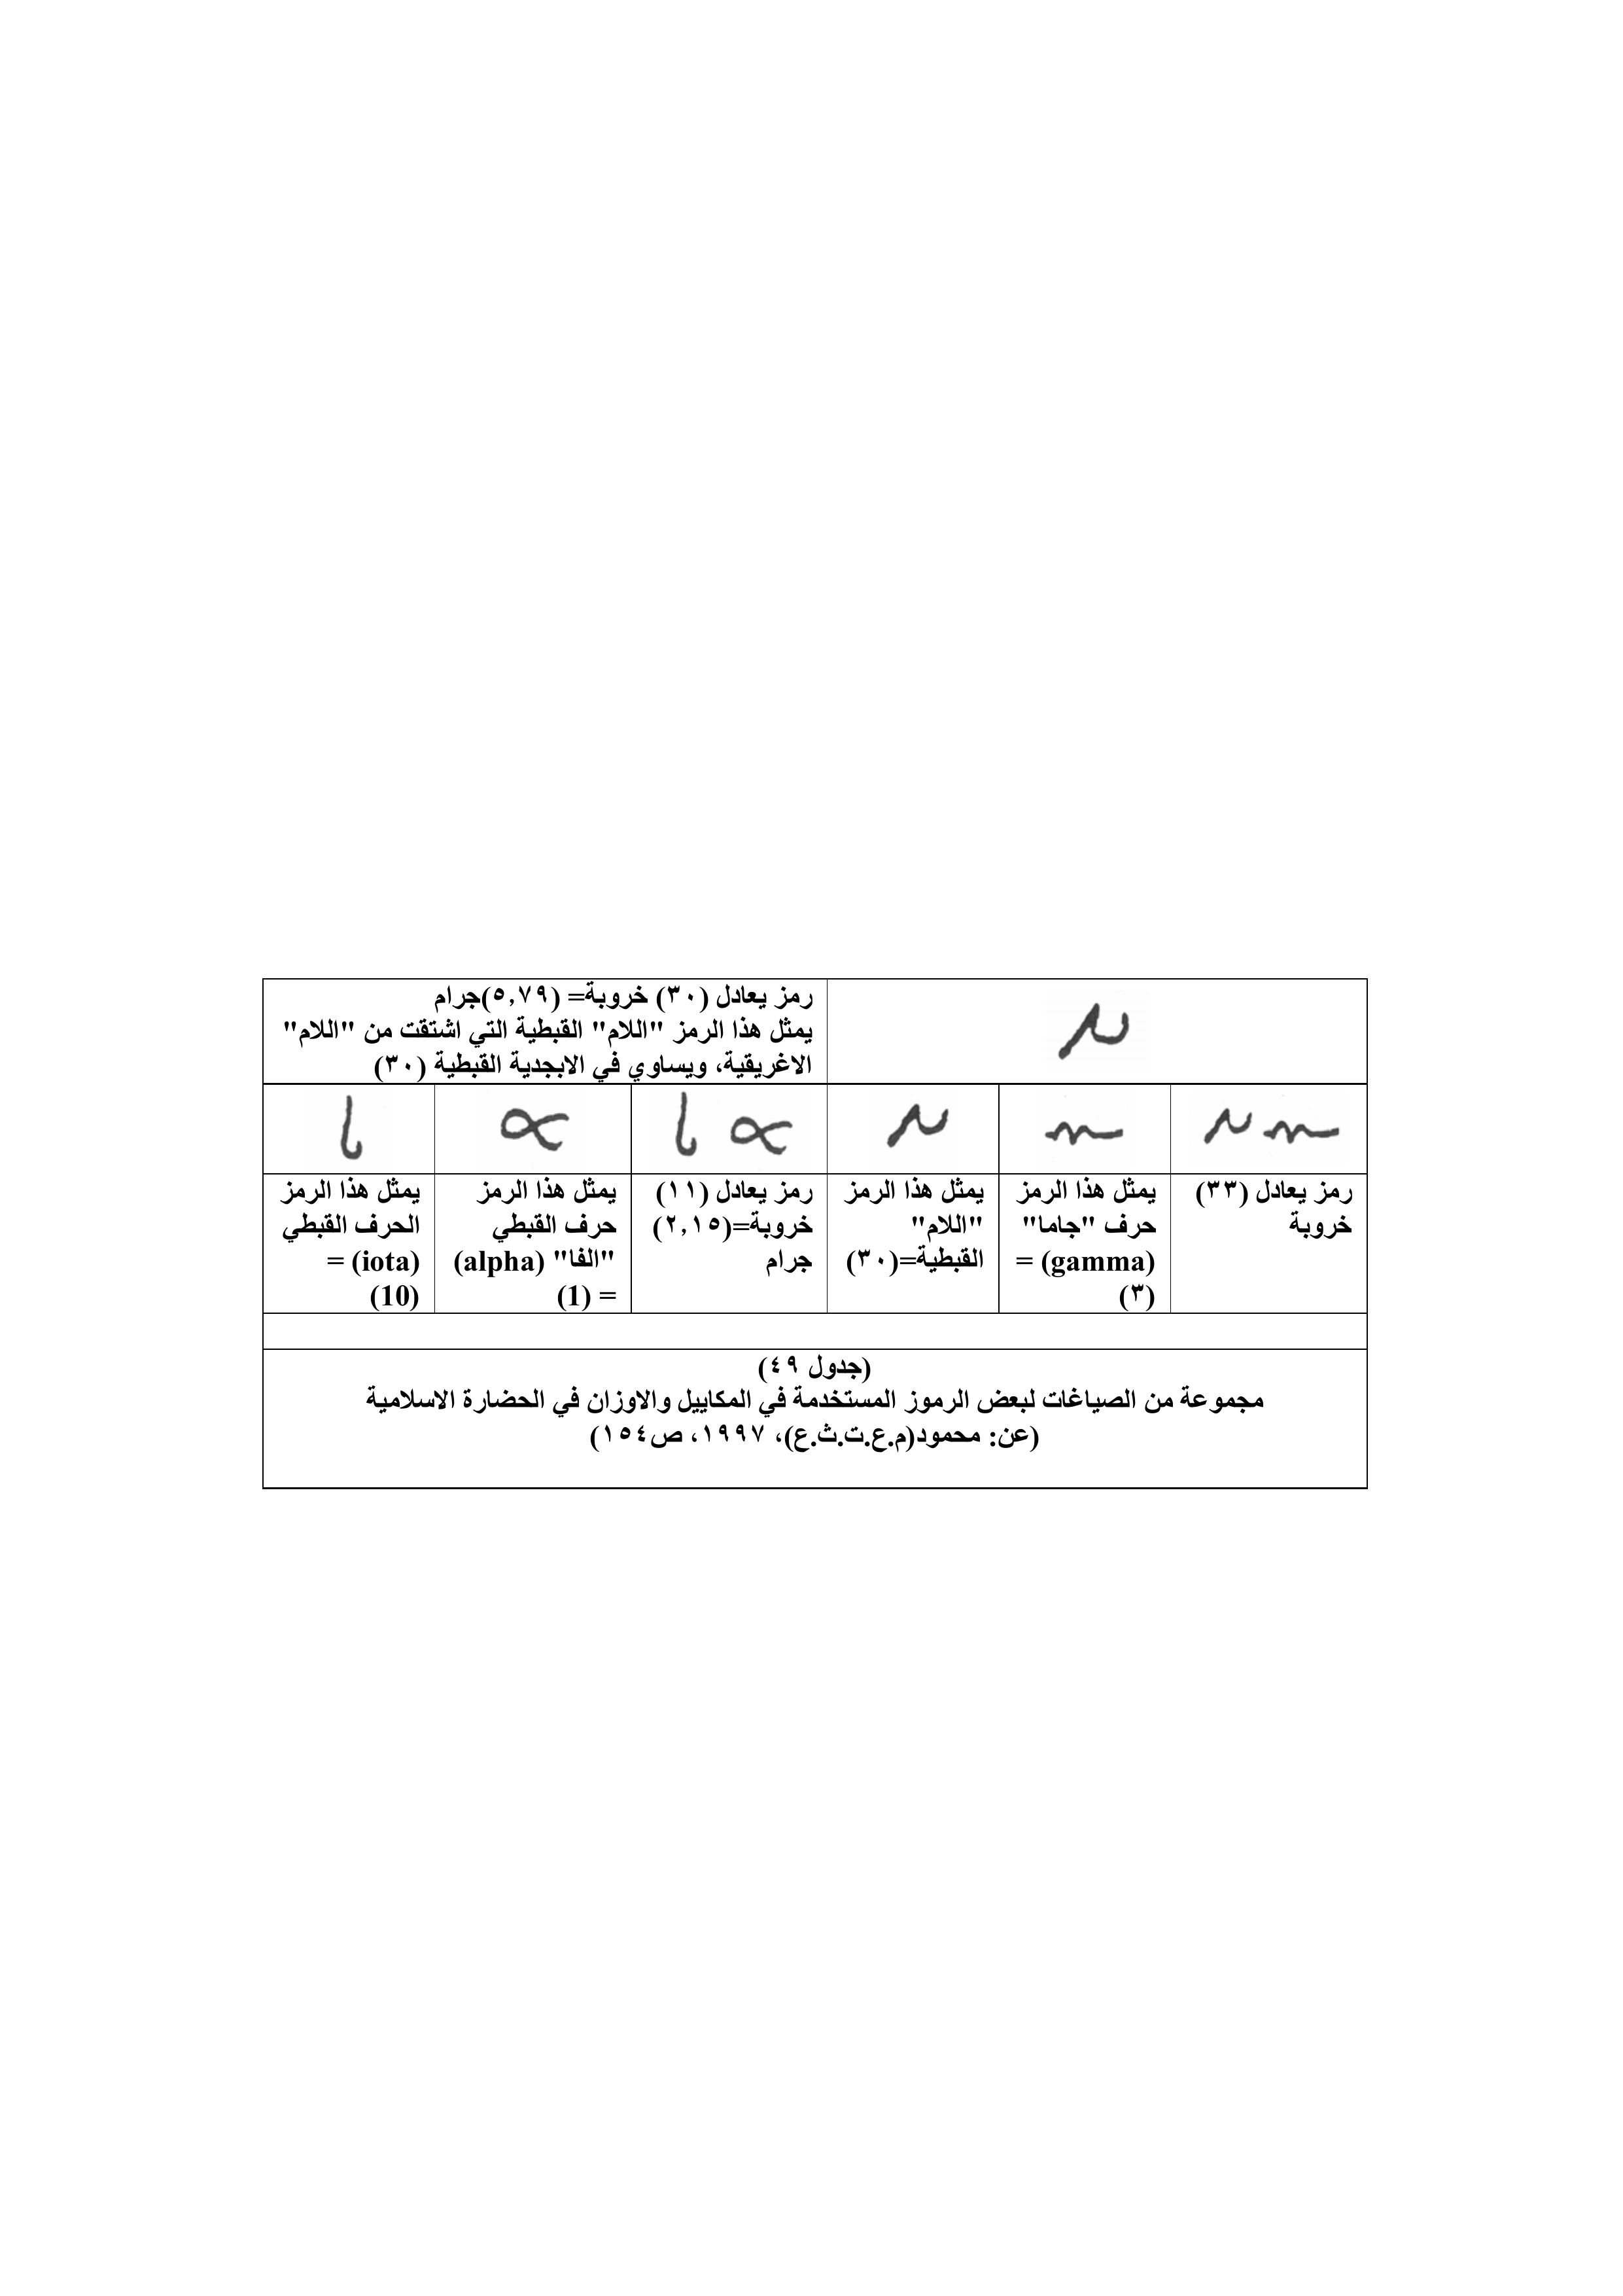 رمز يعادل (٣٠) خروبة= (٥,٧٩)جرام
يمثل هذا الرمز "اللام" القبطية التي اشتقت من "اللام"
الاغريقية، ويساوي في الابجدية القبطية (٣٠)
رمز يعادل (٣٣)
خروبة
يمثل هذا الرمز
حرف "جاما"
(gamma) =
(٣)
يمثل هذا الرمز
"اللام"
القبطية=(٣٠)
رمز يعادل (١١)
خروبة=(٢,١٥)
جرام
يمثل هذا الرمز
حرف القبطي
"الفا" (alpha)
= (1)
يمثل هذا الرمز
الحرف القبطي
(iota) =
(10)
(جدول ٤٩)
مجموعة من الصياغات لبعض الرموز المستخدمة في المكاييل والاوزان في الحضارة الاسلامية
(عن: محمود(م.ع.ت.ث.ع)، ١٩٩٧، ص١٥٤)